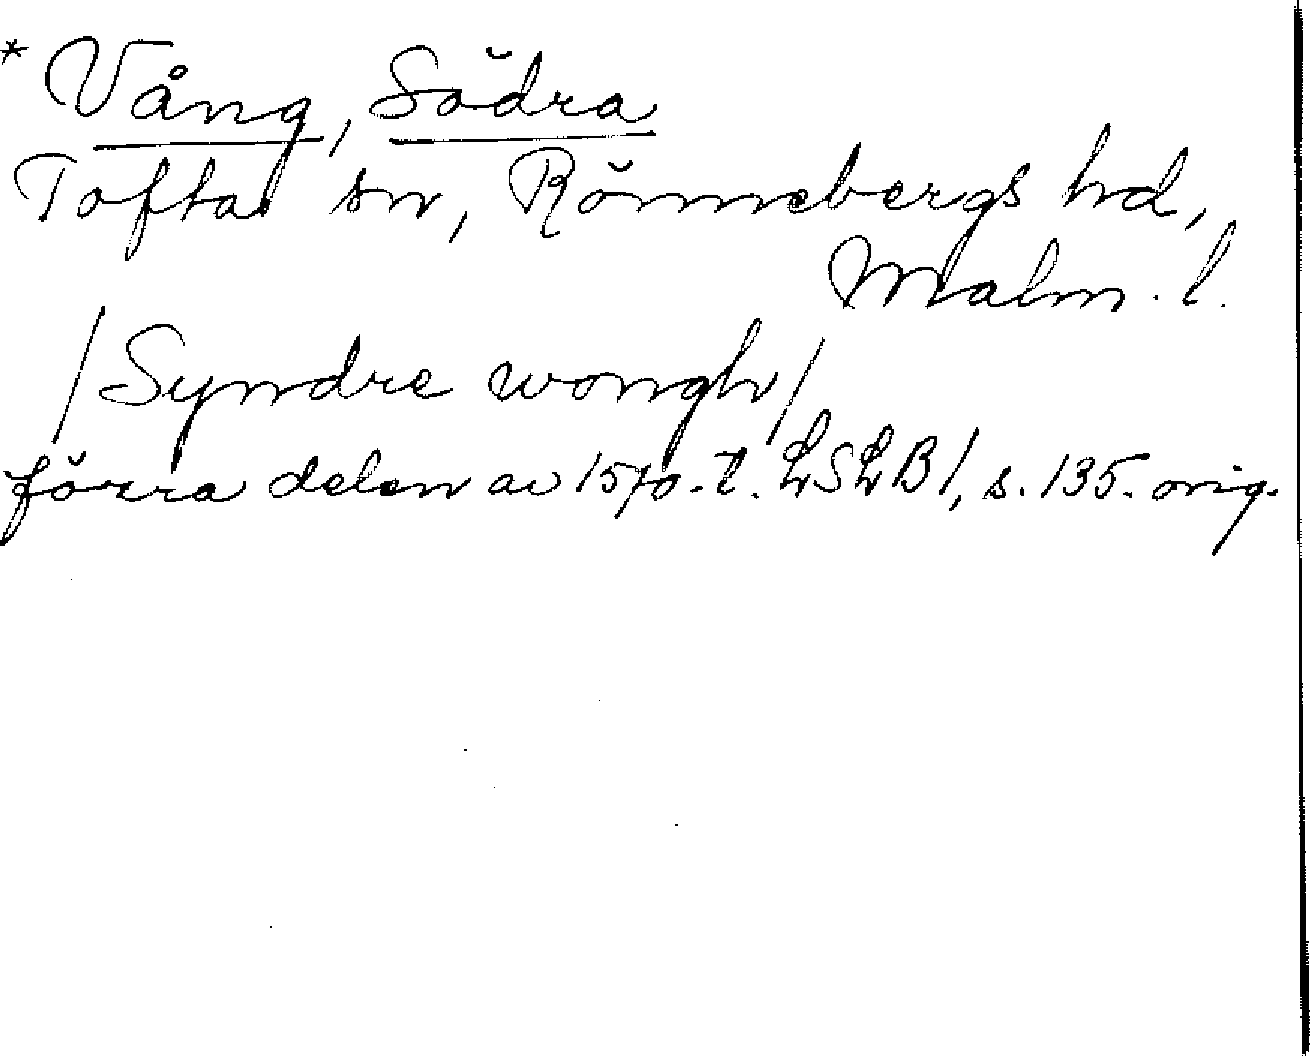 * Vång, Södra
Tofta sn, Rönnebergs hd,
Malm. l.
/Syndre wongh/
förra delen av 1570-t. LSLB 1, s. 135. orig.